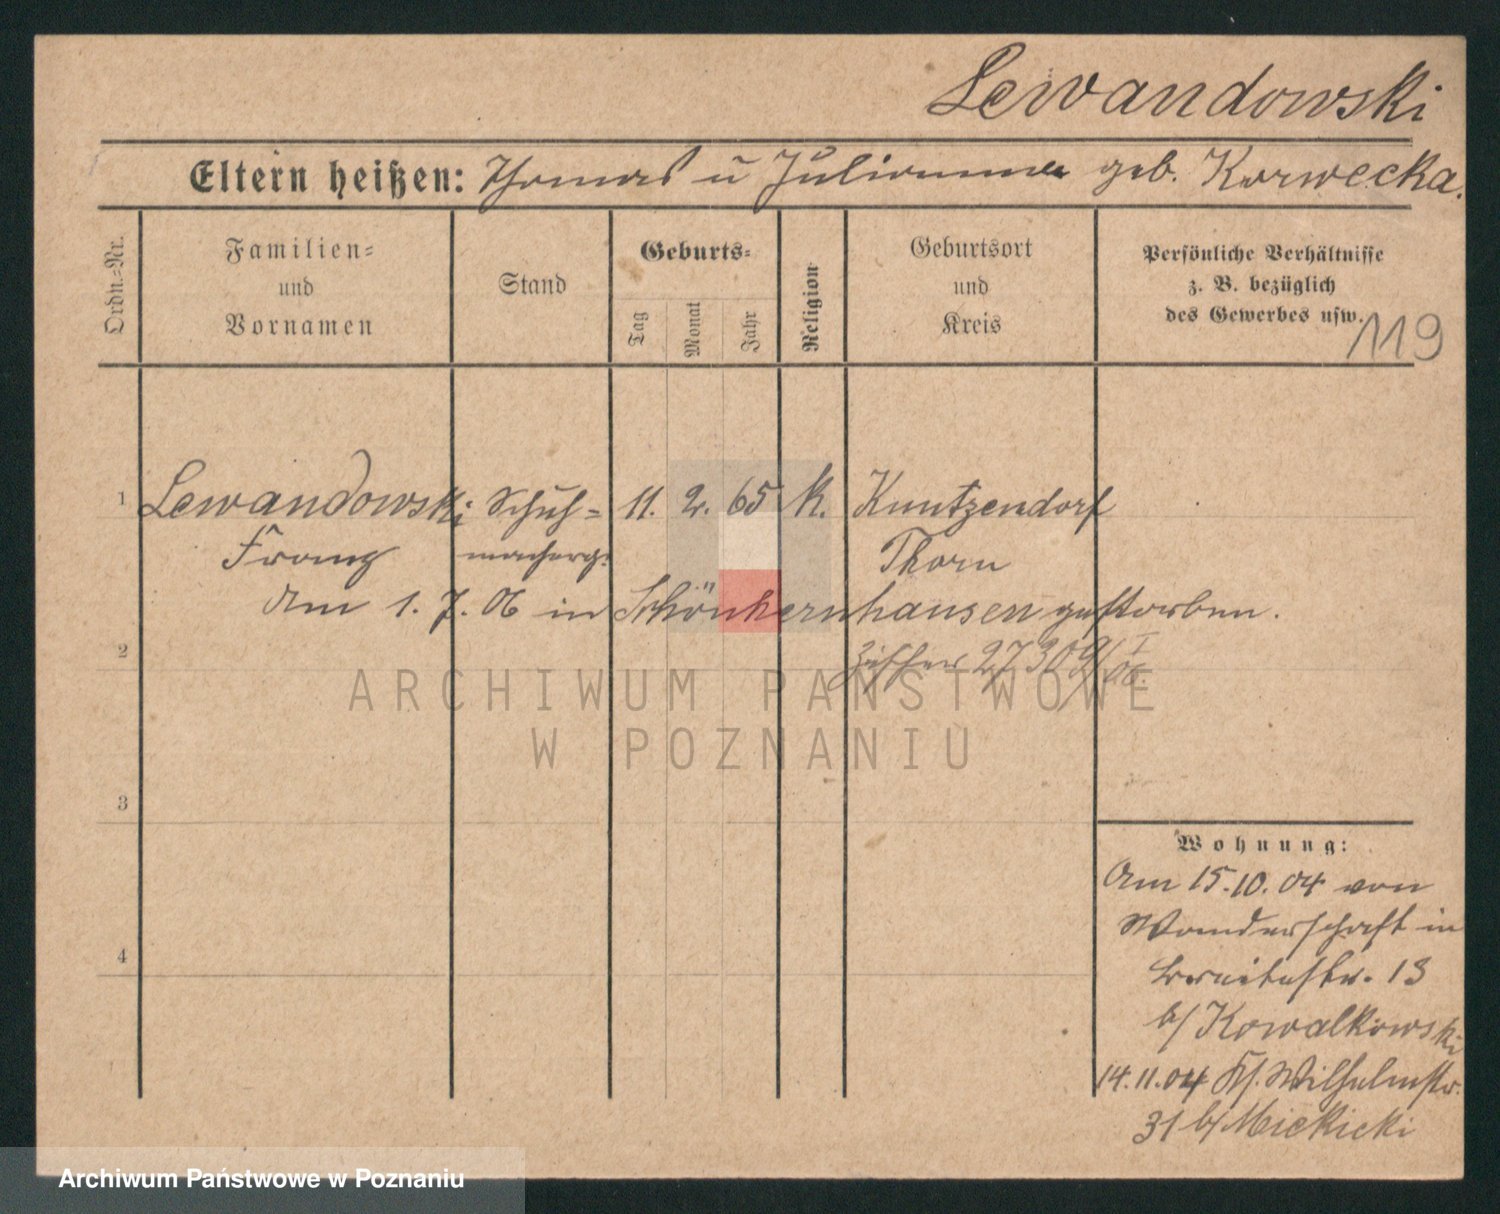 Lewandowski
Eltern heißen: Thomas u Julianna geb. Korwecka.
Ordn.=Nr.
Familien=
und
Vornamen
Stand
Geburts=
Tag
Monat
Jahr
Religion
Geburtsort
und
Kreis
Persönliche Verhältnisse
z. B. bezüglich
des Gewerbes usw.
119
1 Lewandowski Schuh= 11. 2. 65 K. Kuntzendorf
Franz macherg. Thorn
Am 1. 7. 06 in Schönhernhausen gestorben.
2
Ziffer 27309/I 06.
ARCHIWUM PAŃSTWOWE
W POZNANIU
3
Wohnung:
Am 15.10.04 von
Wanderschaft in
13
b/ Kowalkowski
4
14.11.04 Kl. Wilhelmstr.
31 b/ Mickicki
Archiwum Państwowe w Poznaniu